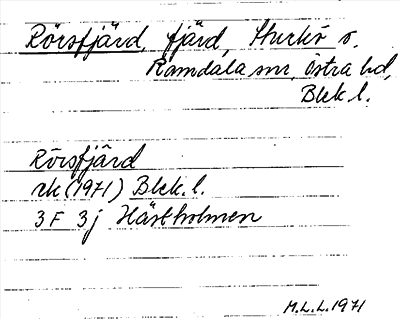 Rörsfjärd, fjärd, Sturkö s.
Ramdala snr, Östra hd,
Blek. l.
Rörsfjärd
rk (1971) Blek. l.
3 F 3j Hästholmen
M.L.L. 1971